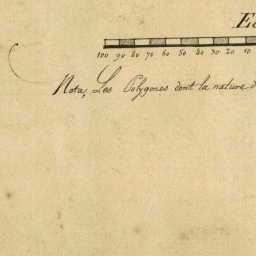 100 90 80 70 60 50 40 30 20 10
Nota, Les Polygones dont la nature